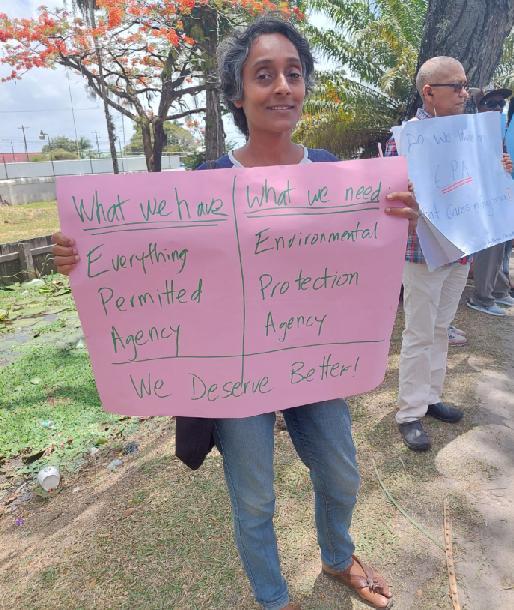 What we have
Everything
Permitted
Agency
What we need
Environmental
Protection
Agency
We Deserve Better!
EPA